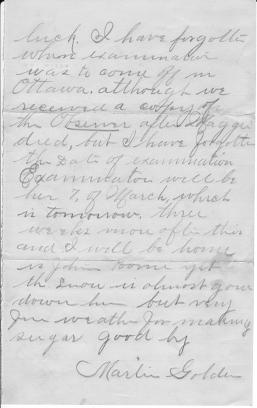 luck. I have forgotten
when examination
was to come off in
Ottawa. although we
received a copy of
the after Maggie
died, but I have forgotten
the Date of examination
Examination will be
her 7, of March, which
is tomorrow. three
weeks more after this
and I will be home
is John home yet
the snow is almost gone
down her but very
fine weather for making
sugar good by
Martin Golden